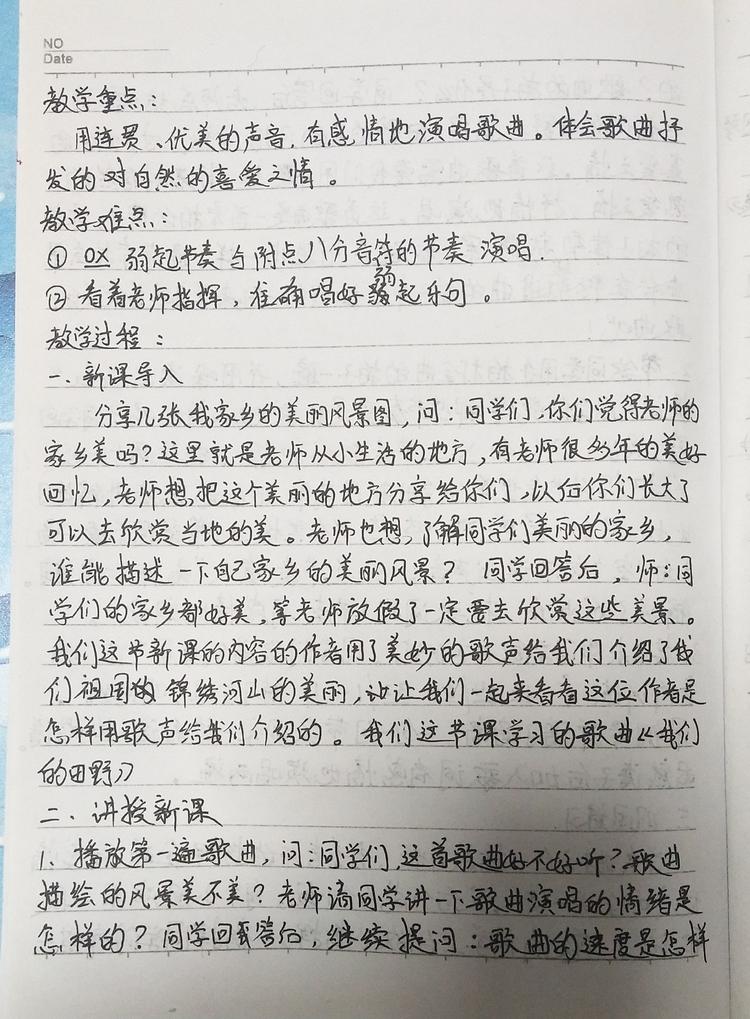 NO
Date
教学重点：
用连贯、优美的声音，有感情地演唱歌曲。体会歌曲抒
发的对自然的喜爱之情。
教学难点：
① 0X 弱起节奏与附点八分音符的节奏演唱.
② 看着老师指挥，准确唱好弱起乐句。
教学过程：
一、新课导入
分享几张我家乡的美丽风景图，问：同学们，你们觉得老师的
家乡美吗？这里就是老师从小生活的地方，有老师很多年的美好
回忆，老师想把这个美丽的地方分享给你们，以后你们长大了
可以去欣赏当地的美。老师也想，了解同学们美丽的家乡，
谁能描述一下自己家乡的美丽风景？同学回答后，师：同
学们的家乡都好美，等老师放假了一定要去欣赏这些美景。
我们这节新课的内容的作者用了美妙的歌声给我们介绍了我
们祖国的锦绣河山的美丽，让我们一起来看看这位作者是
怎样用歌声给我们介绍的。我们这节课学习的歌曲《我们
的田野》
二、讲授新课
1、播放第一遍歌曲，问：同学们，这首歌曲好不好听？歌曲
描绘的风景美不美？老师请同学讲一下歌曲演唱的情绪是
怎样的？同学回答后，继续提问：歌曲的速度是怎样